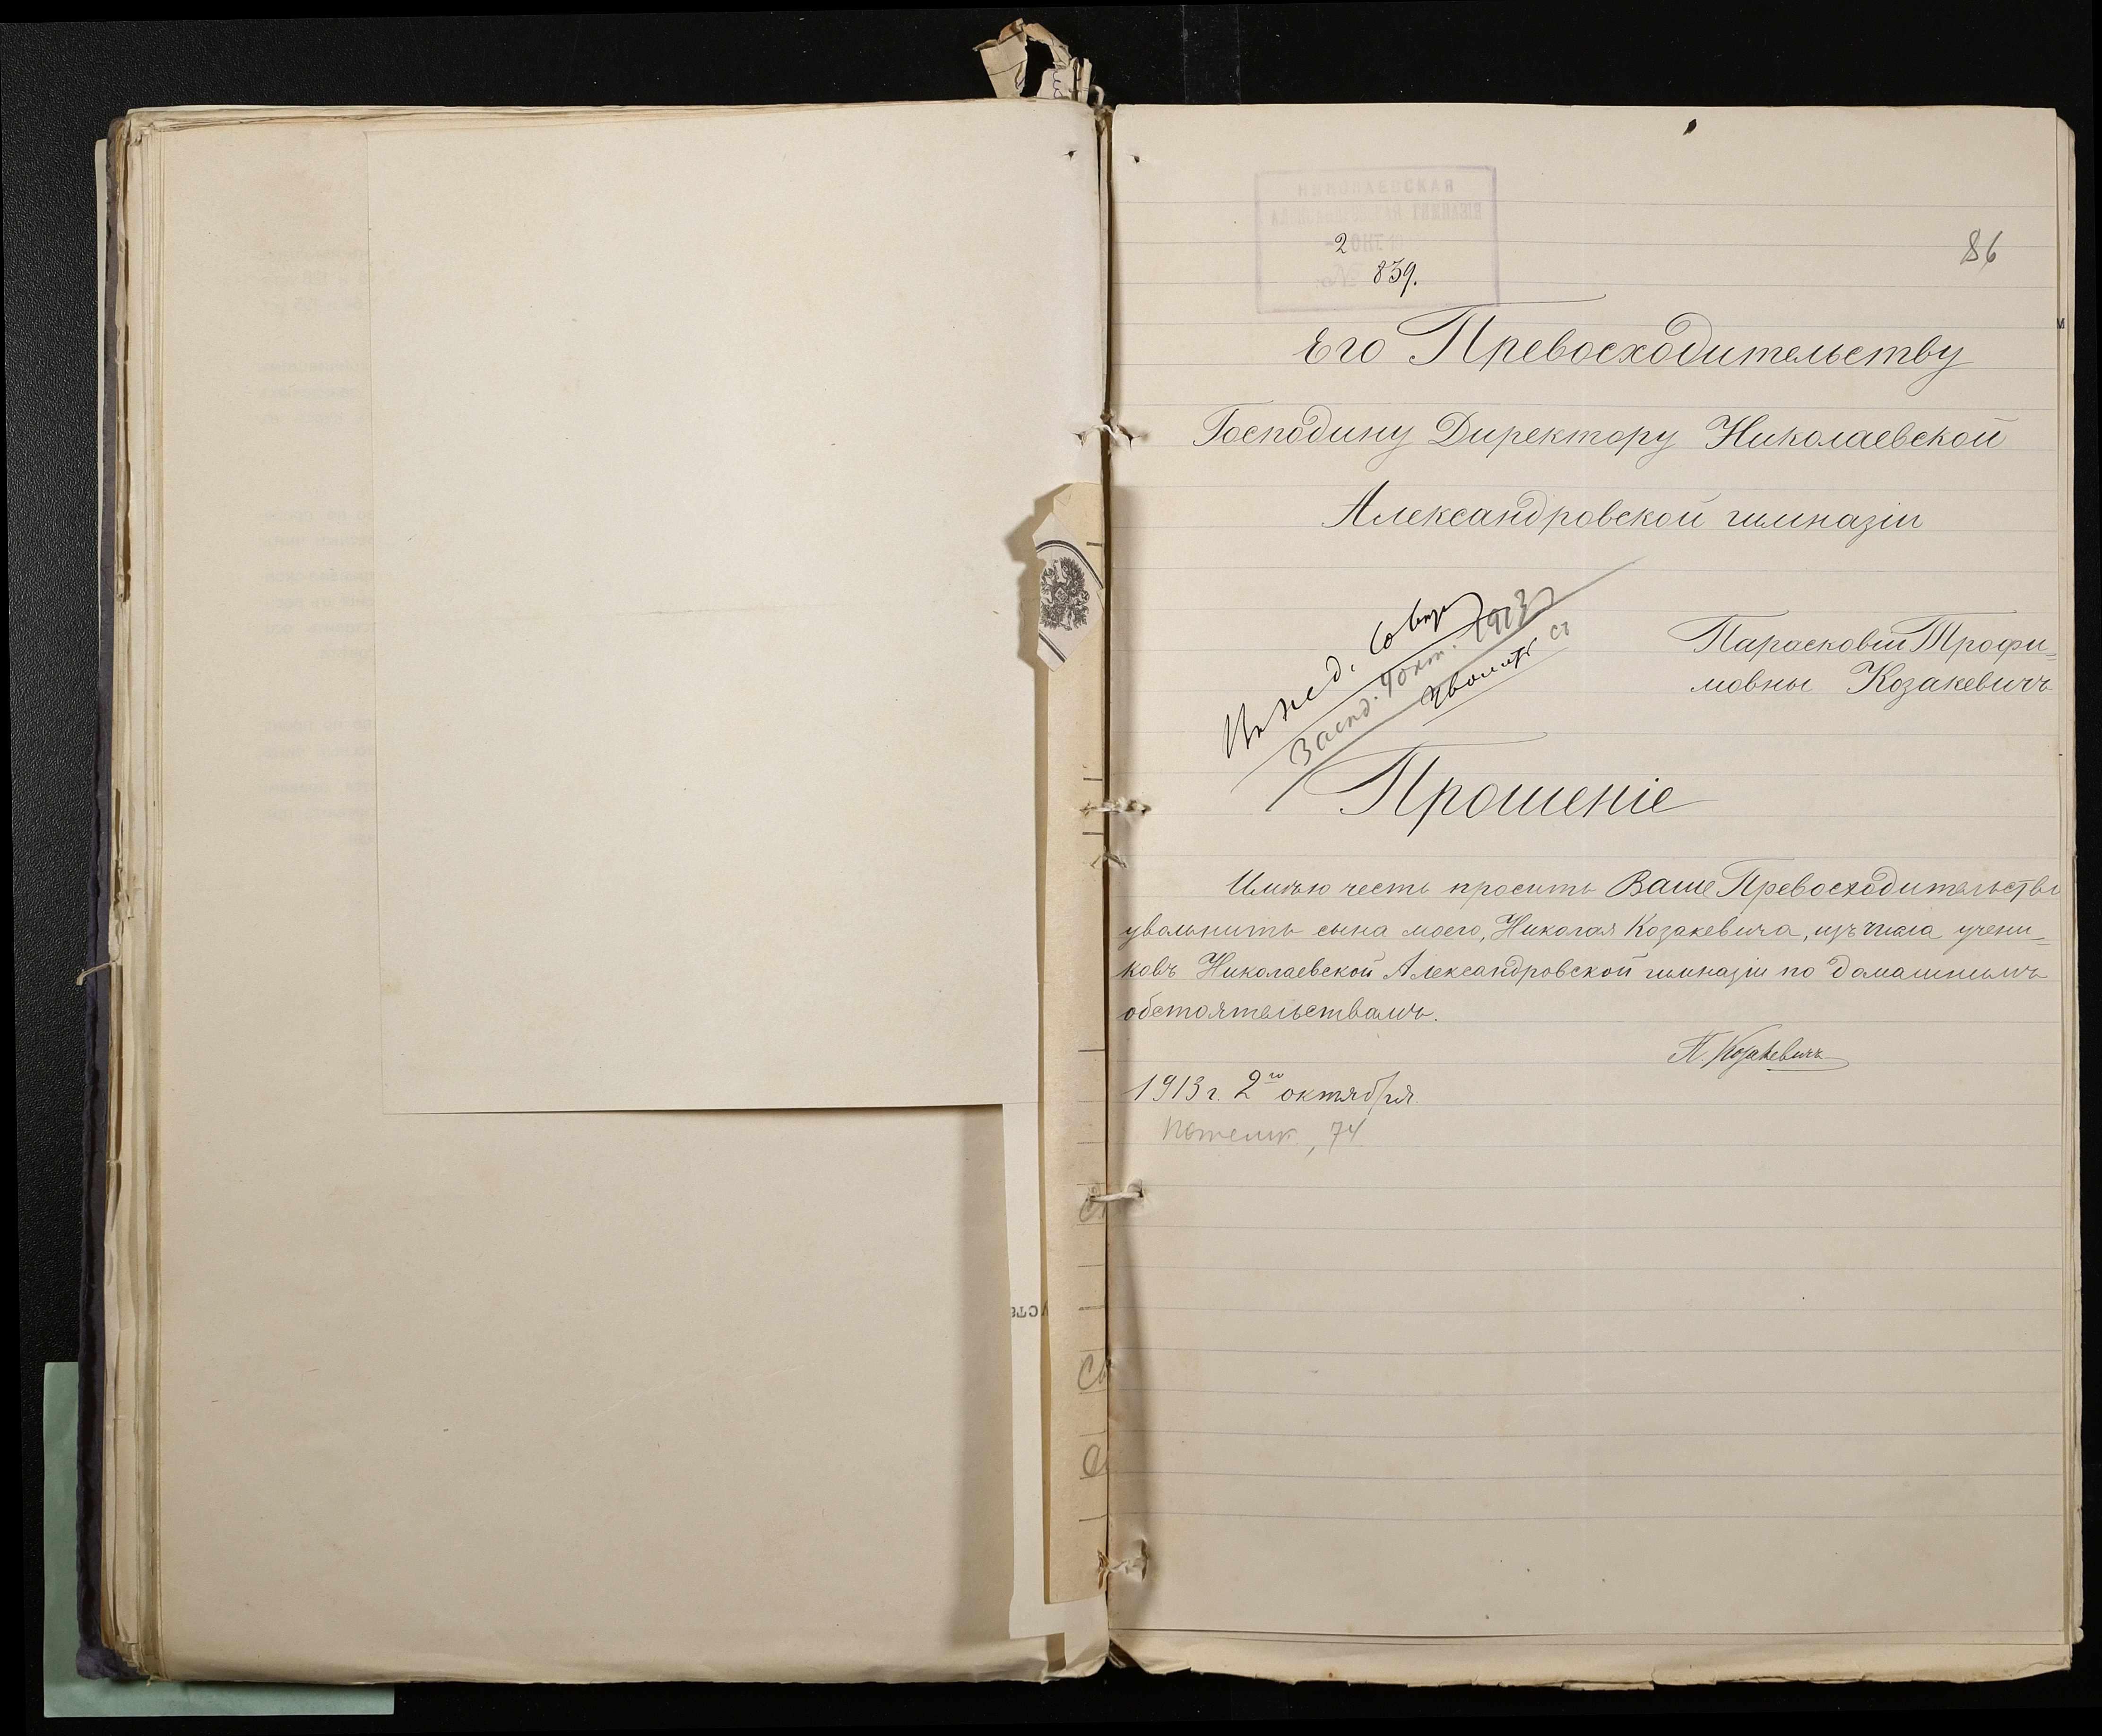 НИКОЛАЕВСКАЯ
АЛЕКСАНДРОВСКАЯ ГИМНАЗІЯ
2 ОКТ 19
839.
86
Его Превосходительству
Господину Директору Николаевской
Александровской гимназіи
Парасковіи Трофи=
мовны Козакевичъ
Засѣд. 1913
Прошеніе
Имѣю честь просить Ваше Превосходительство
уволнить сына моего, Николая Козакевича, изъ числа учени=
ковъ Николаевской Александровской гимназіи по домашнимъ
обстоятельствамъ.
П. Козакевичъ
1913 г. 2го октября.
74